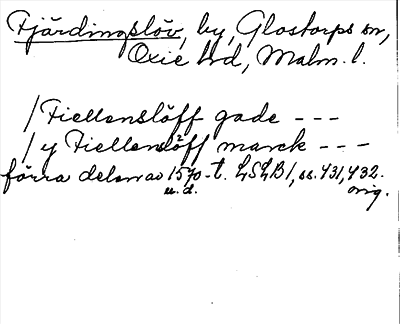 Fjärdingslöv, by, Glostorps sn,
Oxie hd, Malm. l.
/ Fiellenslöff gade - - -
/ y Fiellenslöff marck - - -
förra delen av 1570-t. LSLB 1, ss. 431, 432.
u. d. orig.